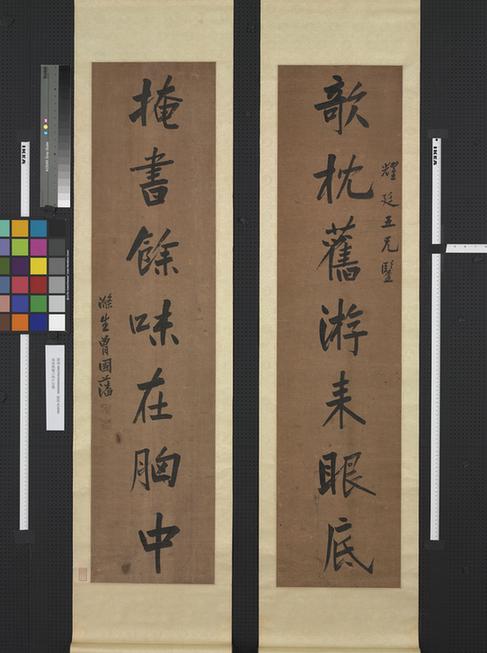 耀廷五兄鑒
欹枕舊游来眼底
掩書餘味在胸中
滌生曾國藩
IKEA
IKEA